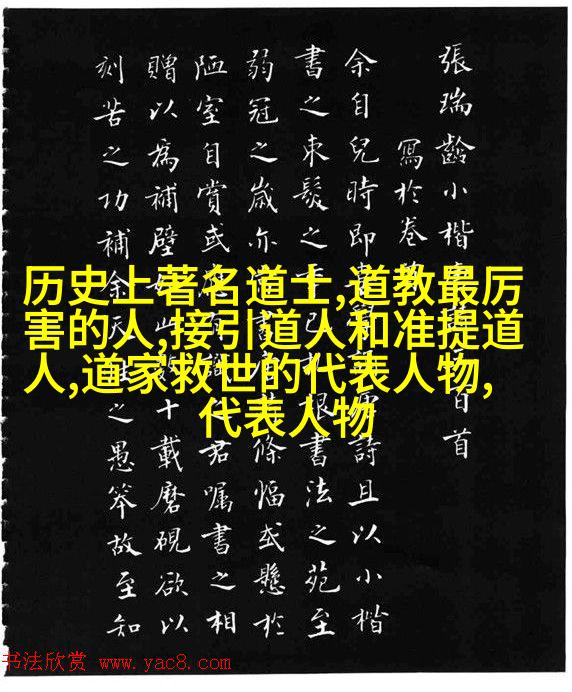 張瑞齡小楷百首
寫於卷
余自兒時即詩且以小楷
書之束髮之根書法之苑至
弱冠之歲亦條幅或懸於
陋室自賞或君囑書之相
贈以為補壁十載磨硯欲以
刻苦之功補余之愚笨故至知
历史上著名道士,道教最厉
害的人,接引道人和准提道
人,道家救世的代表人物,
代表人物
书法欣赏 www.yac8.com